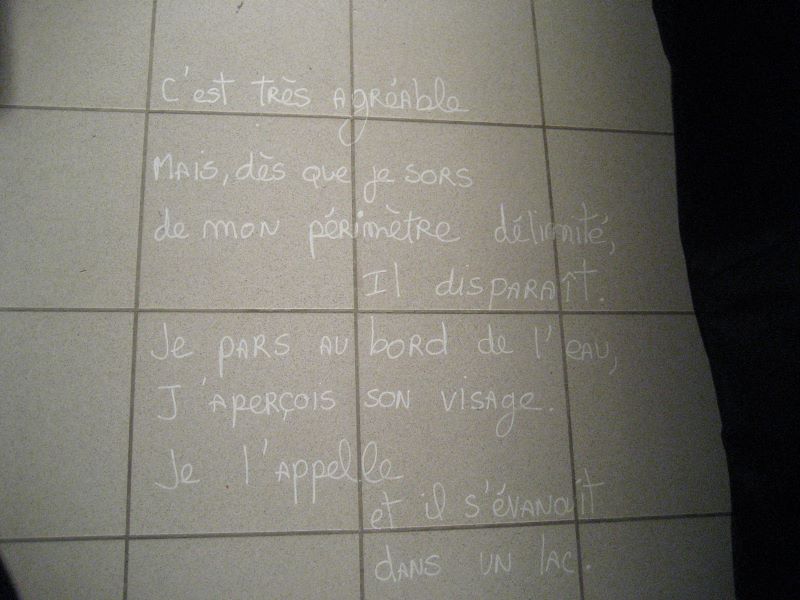 C'est très agréable
Mais, dès que je sors
de mon périmètre délimité,
Il disparaît.
Je pars au bord de l'eau,
J'aperçois son visage.
Je l'appelle
et il s'évanoît
dans un lac.